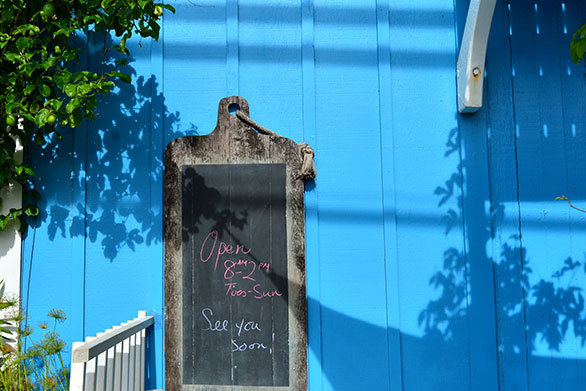 Open
8AM-2PM
Tues-Sun
See you
soon!